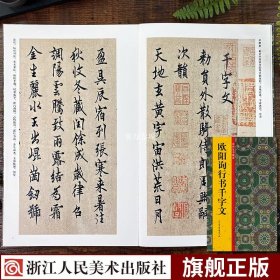 千字文
勑員外散騎侍郎周興嗣
次韻
天地玄黃宇宙洪荒日月
盈昃辰宿列張寒來暑往
秋收冬藏閏餘成歲律呂
調陽雲騰致雨露結為霜
金生麗水玉出崐崗劒號
欧阳询行书千字文
浙江人民美术出版社
旗舰正版